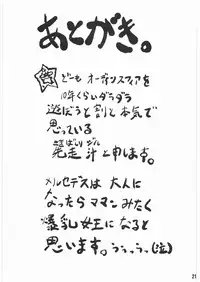 あとがき。
どーも オーディンスフィアを
10年くらいダラダラ
遊ぼうと割と本気で
思っている
発走 汁と申します。
メルセデスは 大人に
なったらママンみたく
爆乳女王になると
思います。うっうっ。(泣)
21